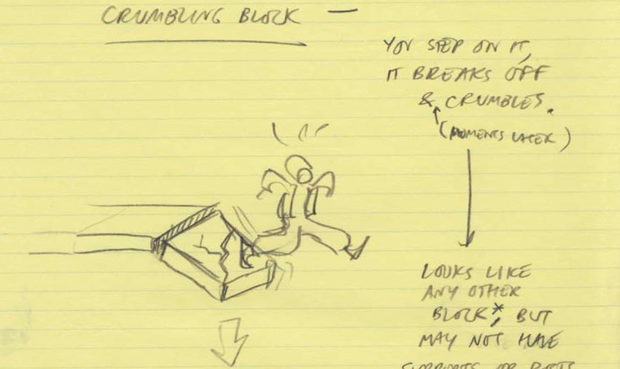 CRUMBLING BLOCK —
YOU STEP ON IT,
IT BREAKS OFF
& CRUMBLES.
(MOMENTS LATER)
LOOKS LIKE
ANY OTHER
BLOCK*, BUT
MAY NOT HAVE
SUPPORTS OR